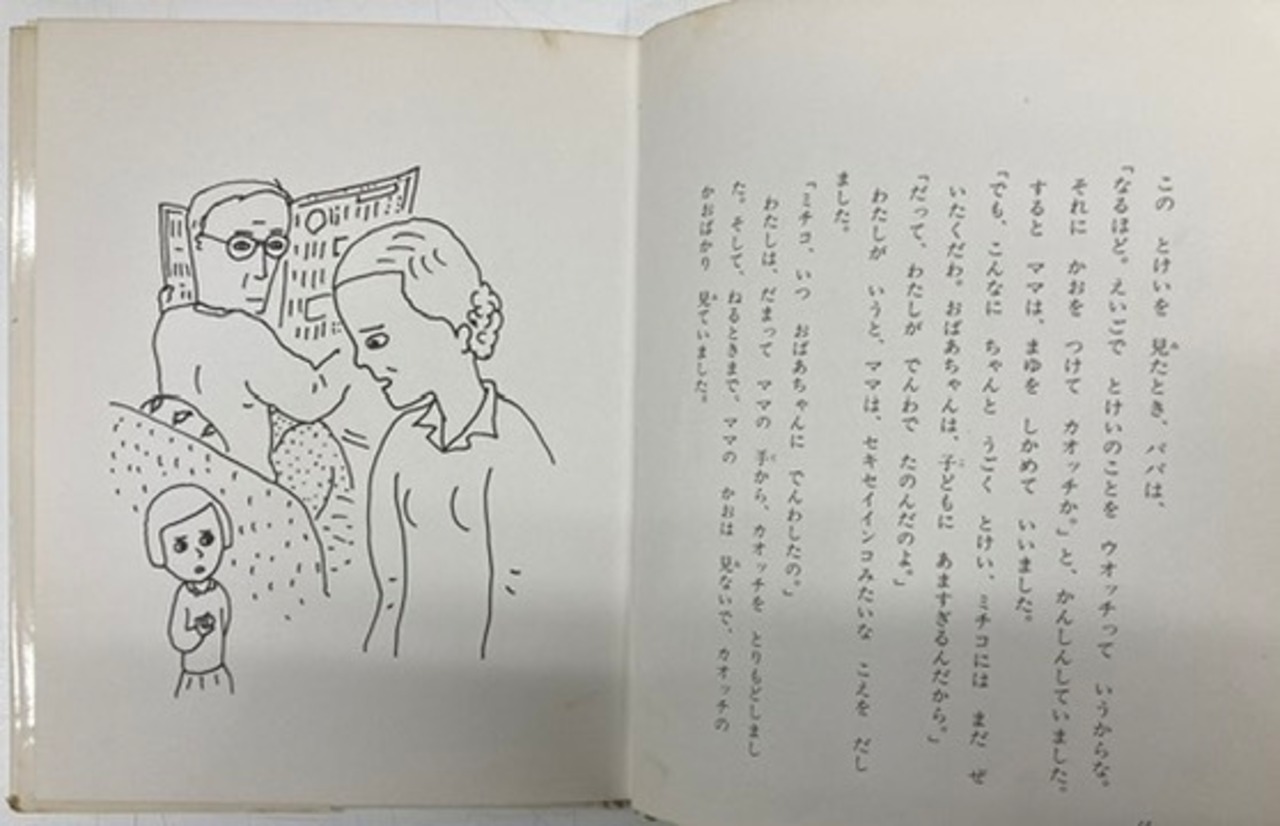 この とけいを 見たとき、パパは、
「なるほど。えいごで とけいのことを ウオッチって いうからな。
それに かおを つけて カオッチか。」と、かんしんしていました。
すると ママは、まゆを しかめて いいました。
「でも、こんなに ちゃんと うごく とけい、ミチコには まだ ぜ
いたくだわ。おばあちゃんは、子どもに あますぎるんだから。」
「だって、わたしが でんわで たのんだのよ。」
わたしが いうと、ママは、セキセイインコみたいな こえを だし
ました。
「ミチコ、いつ おばあちゃんに でんわしたの。」
わたしは、だまって ママの 手から、カオッチを とりもどしまし
た。そして、ねるときまで、ママの かおは 見ないで、カオッチの
かおばかり 見ていました。